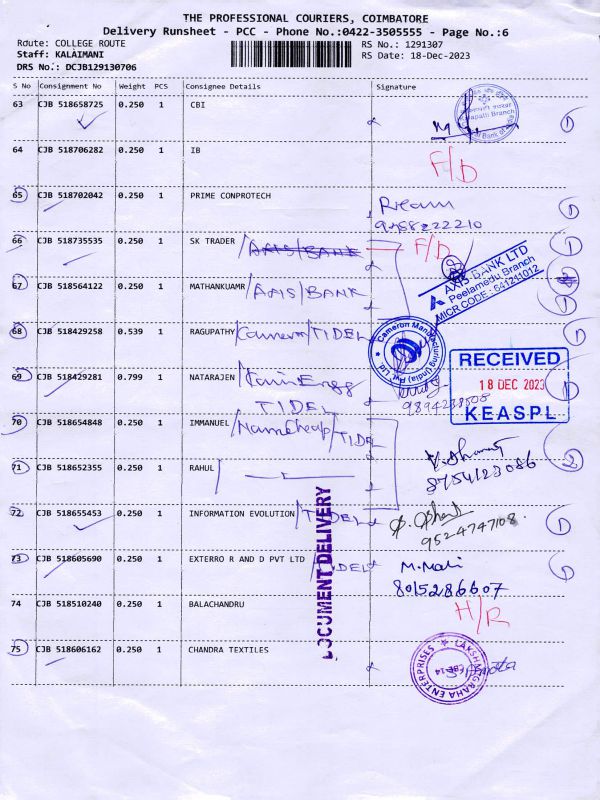 THE PROFESSIONAL COURIERS, COIMBATORE
Delivery Runsheet - PCC - Phone No.:0422-3505555 - Page No.:6
Route: COLLEGE ROUTE
RS No.: 1291307
Staff: KALAIMANI
RS Date: 18-Dec-2023
DRS No.: DCJB129130706
S No Consignment No Weight PCS Consignee Details Signature
63 CJB 518658725 0.250 1 CBI
64 CJB 518706282 0.250 1 IB F/D
65 CJB 518702042 0.250 1 PRIME CONPROTECH
66 CJB 518735535 0.250 1 SK TRADER /AXIS/BANK F/D
AXIS BANK LTD
Peelamedu Branch
MICR CODE - 641211012
67 CJB 518564122 0.250 1 MATHANKUAMR /AXIS/BANK
68 CJB 518429258 0.539 1 RAGUPATHY /Cameron/TIDEL
Cameron Manufacturing (India) Pvt. Ltd.
69 CJB 518429281 0.799 1 NATARAJEN
TIDEL
RECEIVED
18 DEC 2023
KEASPL
70 CJB 518654848 0.250 1 IMMANUEL /Namecheap/TIDEL
71 CJB 518652355 0.250 1 RAHUL
8754123086
72 CJB 518655453 0.250 1 INFORMATION EVOLUTION /TIDEL
9524747108
73 CJB 518605690 0.250 1 EXTERRO R AND D PVT LTD /TIDEL M.Mali
8015286607
DOCUMENT DELIVERY
74 CJB 518510240 0.250 1 BALACHANDRU H/R
75 CJB 518606162 0.250 1 CHANDRA TEXTILES
ENTERPRISES